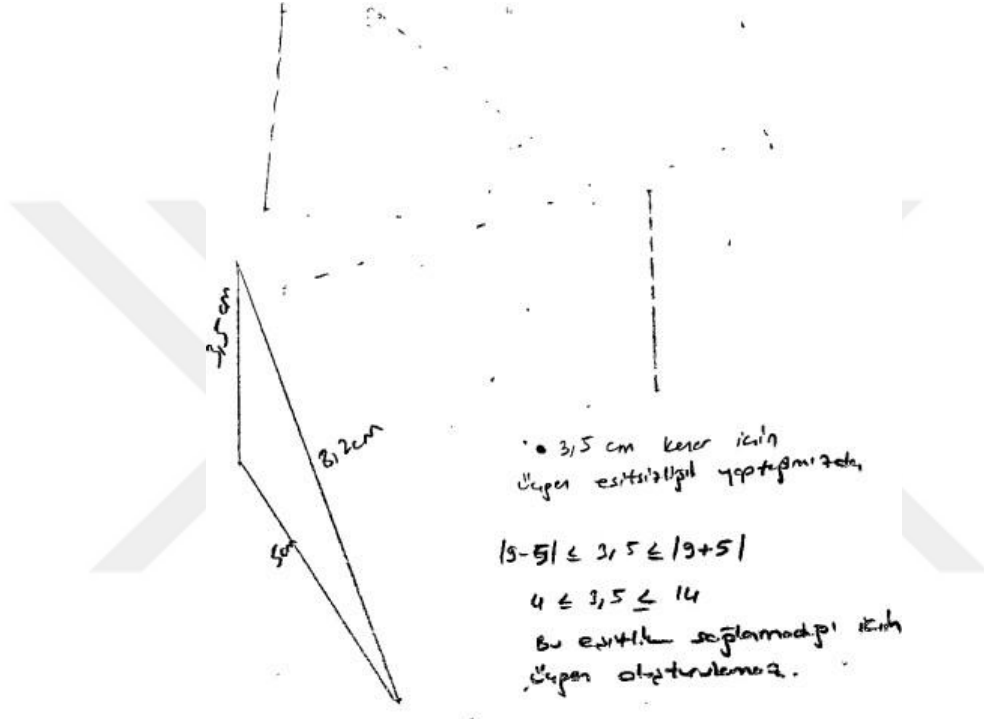 3,5 cm
8,2 cm
• 3,5 cm kenar için
üçgen eşitsizliği yaptığımızda
|9-5| ≤ 3,5 ≤ |9+5|
4 ≤ 3,5 ≤ 14
Bu eşitlik sağlamadığı için
üçgen oluşturulamaz.